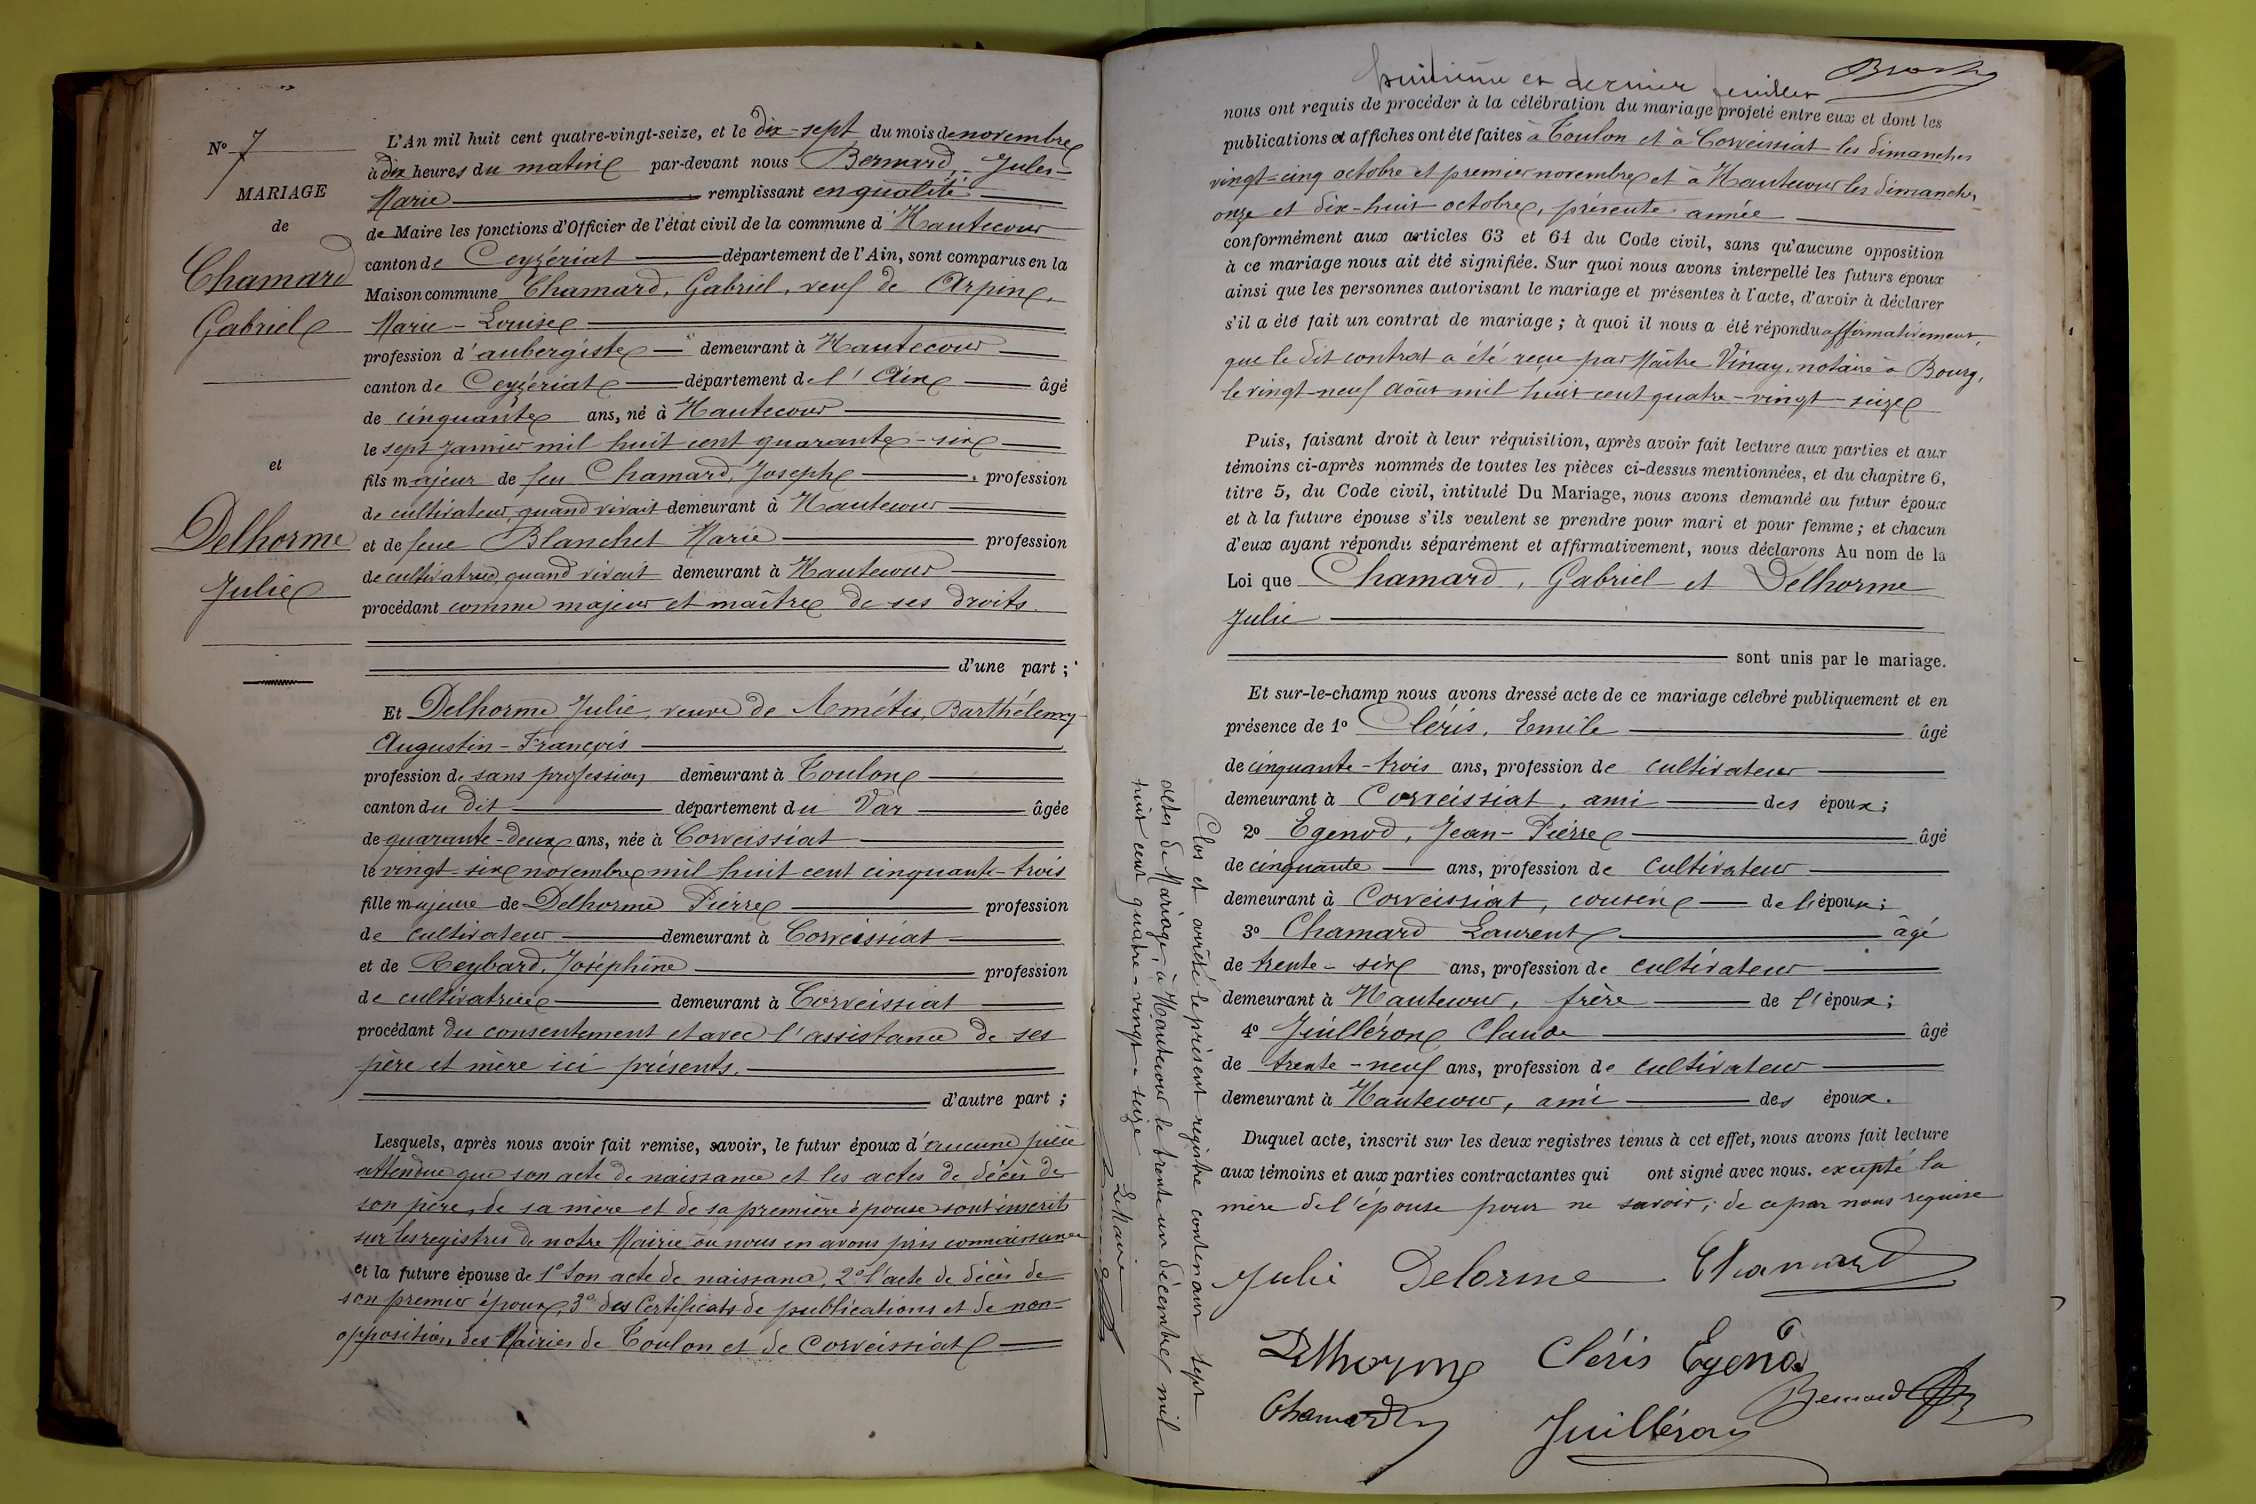 N° 7
MARIAGE
de
Chamard
Gabriel
et
Delhorme
Julie
L'An mil huit cent quatre-vingt-seize, et le dix-sept du mois de novembre
à dix heures du matin par-devant nous Bernard, Jules-
Marie remplissant en qualité
de Maire les fonctions d'Officier de l'état civil de la commune d'Hautecour
canton de Ceyzériat département de l'Ain, sont comparus en la
Maison commune Chamard, Gabriel, veuf de Arpin,
Marie-Louise
profession d'aubergiste demeurant à Hautecour
canton de Ceyzériat département de l'Ain âgé
de cinquante ans, né à Hautecour
le sept janvier mil huit cent quarante-six
fils majeur de feu Chamard, Joseph, profession
de cultivateur, quand vivait demeurant à Hautecour
et de feue Blanchet Marie profession
de cultivatrice, quand vivait demeurant à Hautecour
procédant comme majeur et maître de ses droits.
d'une part ;
Et Delhorme Julie, veuve de Amétis, Barthélemy-
Augustin-François
profession de sans profession demeurant à Toulon
canton du dit département du Var âgée
de quarante-deux ans, née à Corveissiat
le vingt-six novembre mil huit cent cinquante-trois
fille majeure de Delhorme Pierre profession
de cultivateur demeurant à Corveissiat
et de Reybard, Joséphine profession
de cultivatrice demeurant à Corveissiat
procédant du consentement et avec l'assistance de ses
père et mère ici présents.
d'autre part ;
Lesquels, après nous avoir fait remise, savoir, le futur époux d'aucune pièce
attendu que son acte de naissance et les actes de décès de
son père, de sa mère et de sa première épouse sont inscrits
sur les registres de notre Mairie où nous en avons pris connaissance
et la future épouse de 1° Son acte de naissance, 2° l'acte de décès de
son premier époux, 3° des Certificats de publications et de non-
opposition des Mairies de Toulon et de Corveissiat
huitième et dernier feuillet
nous ont requis de procéder à la célébration du mariage projeté entre eux et dont les
publications et affiches ont été faites à Toulon et à Corveissiat les dimanches
vingt-cinq octobre et premier novembre et à Hautecour les dimanches
onze et dix-huit octobre, présente année
conformément aux articles 63 et 64 du Code civil, sans qu'aucune opposition
à ce mariage nous ait été signifiée. Sur quoi nous avons interpellé les futurs époux
ainsi que les personnes autorisant le mariage et présentes à l'acte, d'avoir à déclarer
s'il a été fait un contrat de mariage ; à quoi il nous a été répondu affirmativement,
que le dit contrat a été reçu par Maître Vinay, notaire à Bourg,
le vingt-neuf Août mil huit cent quatre-vingt-seize
Puis, faisant droit à leur réquisition, après avoir fait lecture aux parties et aux
témoins ci-après nommés de toutes les pièces ci-dessus mentionnées, et du chapitre 6,
titre 5, du Code civil, intitulé Du Mariage, nous avons demandé au futur époux
et à la future épouse s'ils veulent se prendre pour mari et pour femme ; et chacun
d'eux ayant répondu séparément et affirmativement, nous déclarons Au nom de la
Loi que Chamard, Gabriel et Delhorme
Julie
sont unis par le mariage.
Et sur-le-champ nous avons dressé acte de ce mariage célébré publiquement et en
présence de 1° Cléris, Emile âgé
de cinquante-trois ans, profession de cultivateur
demeurant à Corveissiat, ami des époux ;
2° Egenod, Jean-Pierre âgé
de cinquante ans, profession de cultivateur
demeurant à Corveissiat, cousin de l'époux ;
3° Chamard Laurent âgé
de trente-six ans, profession de cultivateur
demeurant à Hautecour, frère de l'époux ;
4° Juilléron Claude âgé
de trente-neuf ans, profession de cultivateur
demeurant à Hautecour, ami des époux.
Duquel acte, inscrit sur les deux registres tenus à cet effet, nous avons fait lecture
aux témoins et aux parties contractantes qui ont signé avec nous. excepté la
mère de l'épouse pour ne savoir ; de ce par nous requise
Julie Delorme Chamard
Delhorme Cléris Egenod
Chamard Juilléron Bernard
Clos et arrêté le présent registre contenant sept
actes de Mariage, à Hautecour le trente un décembre mil
huit cent quatre-vingt-seize
Le Maire